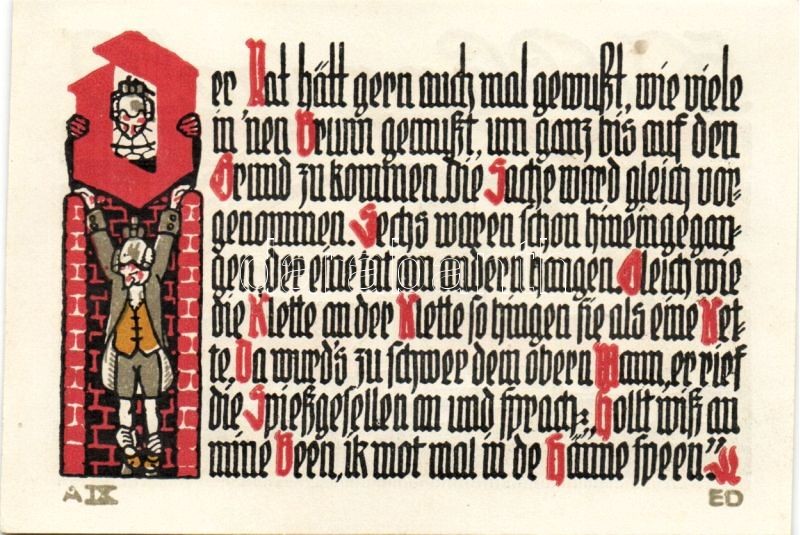 Der Rat hätt gern auch mal gewußt, wie viele
in 'nen Brunn gemußt, um ganz bis auf den
Grund zu kommen. Die Sache ward gleich vor-
genommen. Sechs waren schon hineingegan-
gen, der eine tat on andern hangen. Gleich wie
die Klette an der Klette so hingen sie als eine Ket-
te. Da wurd's zu schwer dem obern Mann, er rief
die Spießgesellen an und sprach: „Hollt wiß an
mine Been, ik mot mal in de Hänne speen."
A IX
ED
darabanth